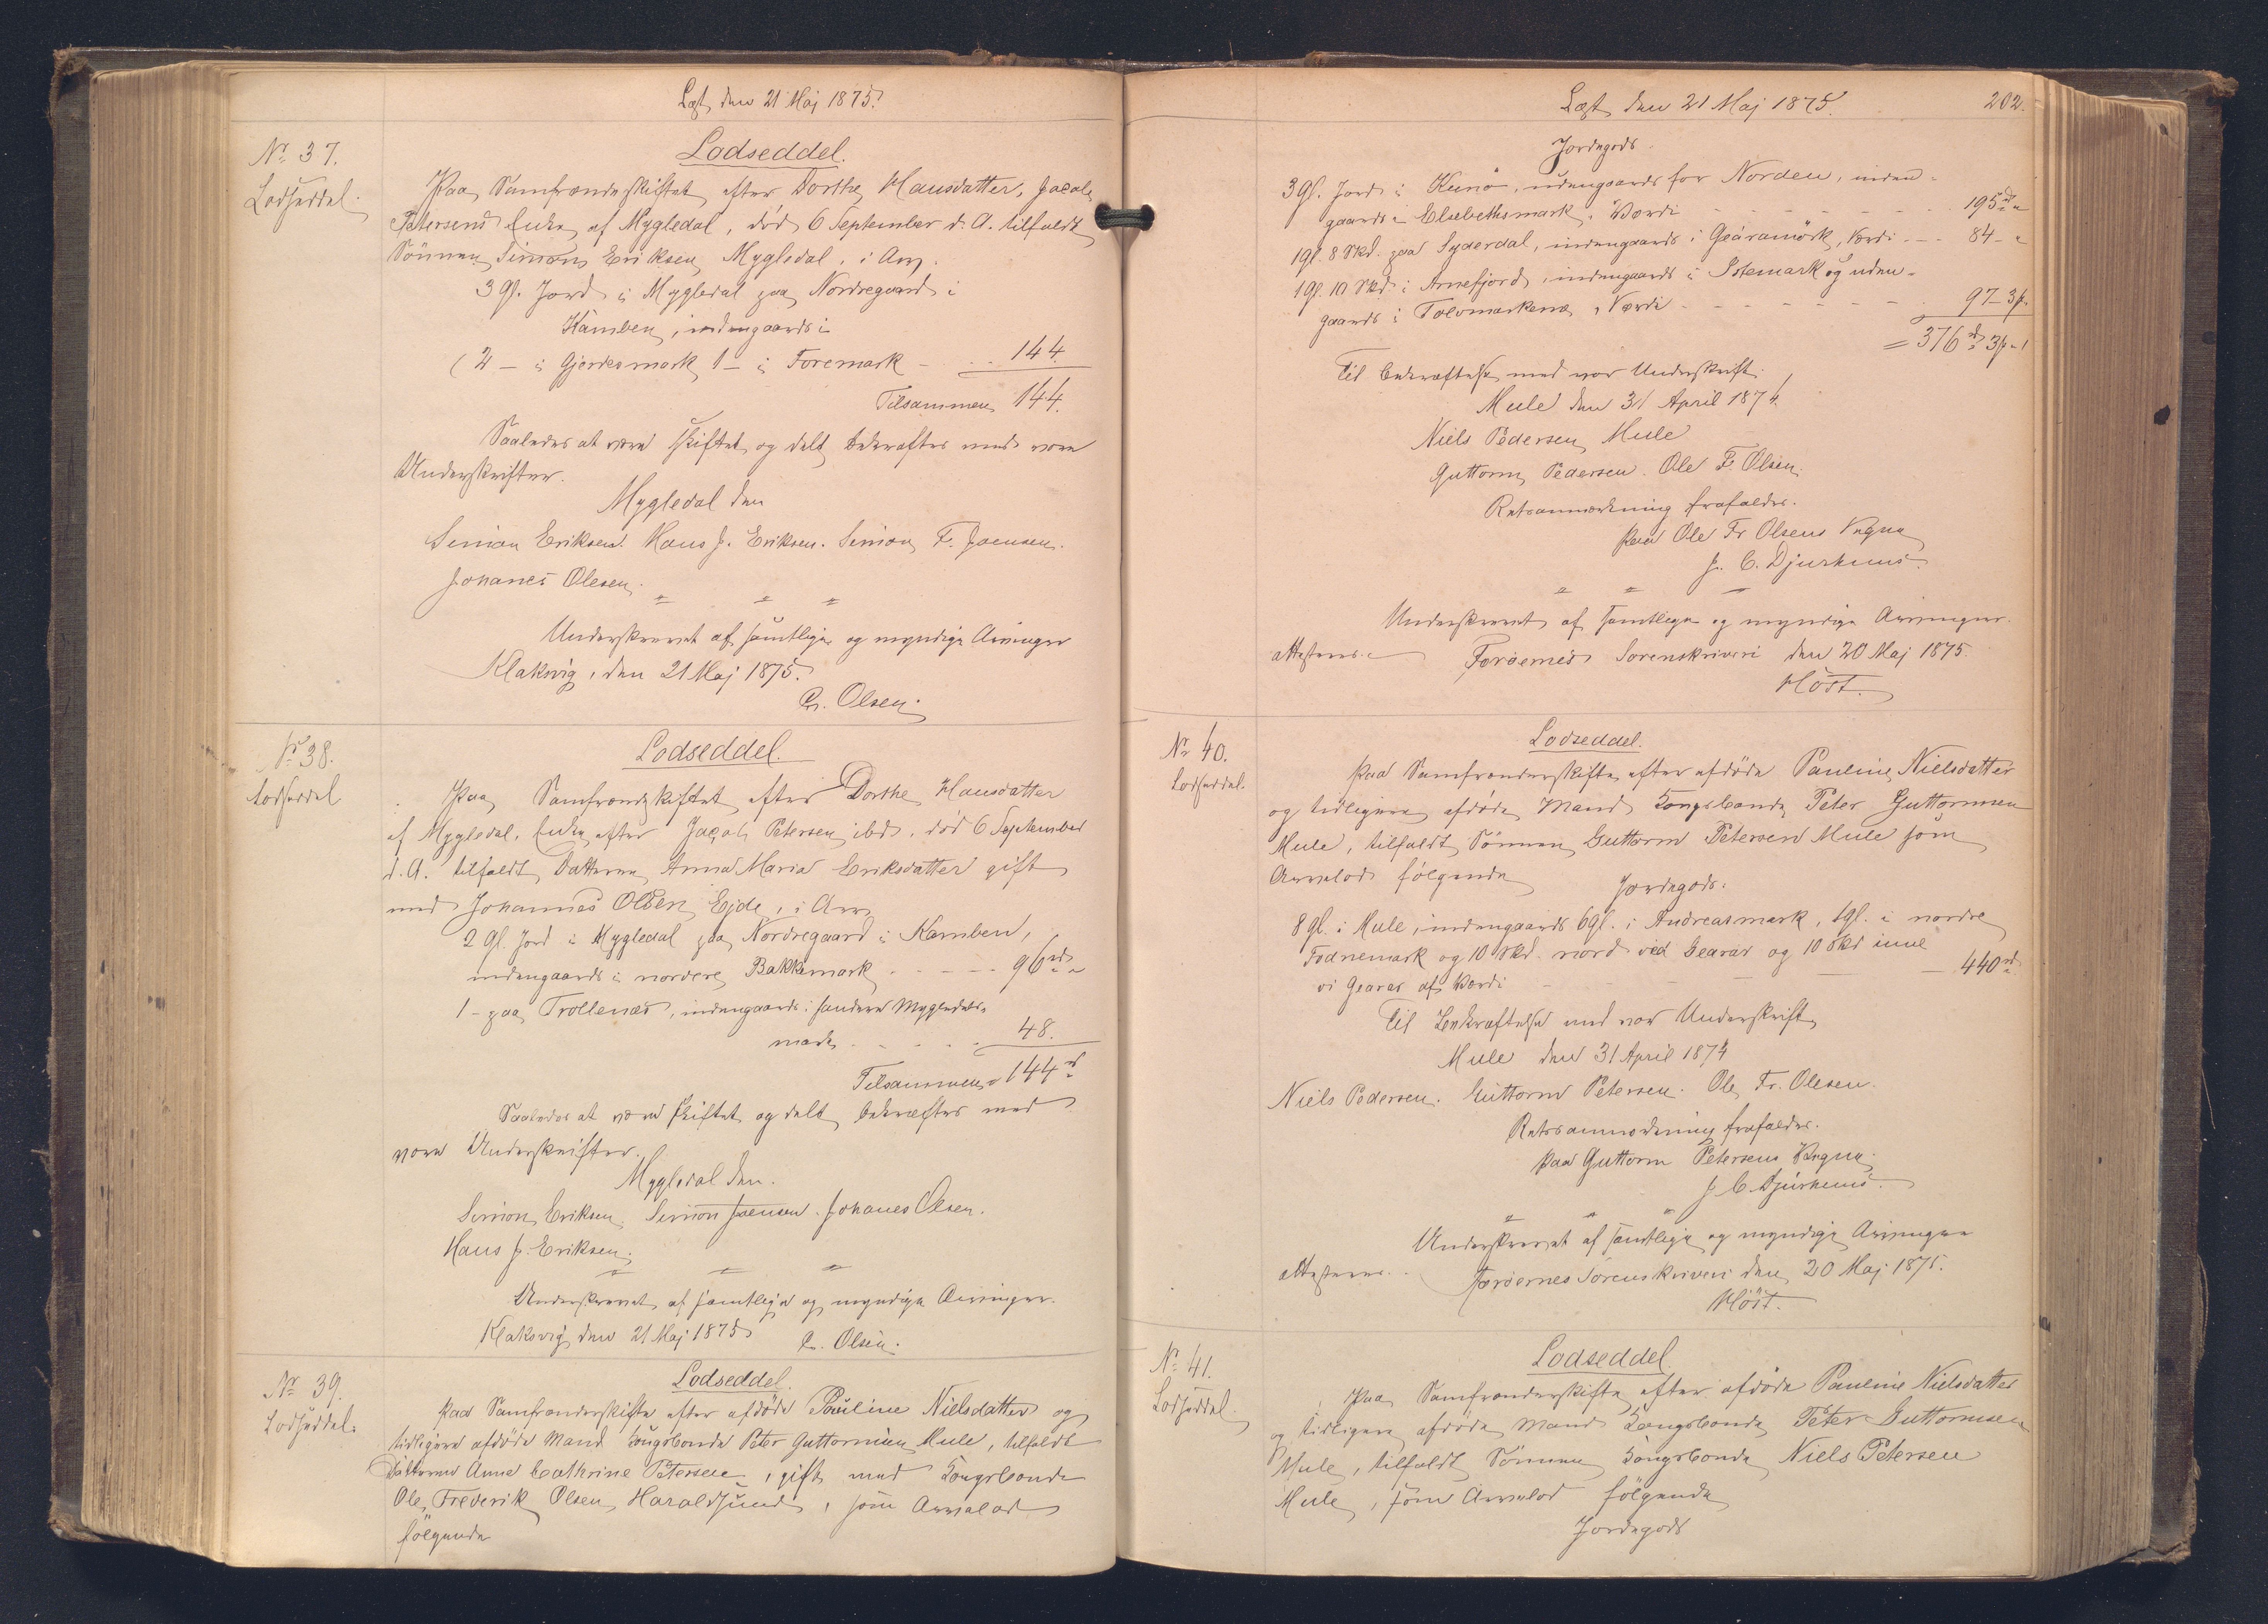 Læst den 21 Maj 1875.
No 37.
Lodseddel.
Lodseddel.
Paa Samfrændeskiftet efter Dorthe Hansdatter, Jacob
Petersens Enke af Mygledal, död 6 September d. A. tilfaldt
Sönnen Simon Eriksen Mygledal, i Arv.
3 Gl. Jord i Mygledal paa Nordregaard i
Kamben, indengaards i
(2 – i Gjerdesmark 1 – i Foremark - . . 144.
Tilsammen 144.
Saaledes at være skiftet og delt bekræftes med vore
Underskrifter.
Mygledal den
Simon Eriksen. Hans J. Eriksen. Simon F. Joensen.
Johanes Olesen.
Underskrevet af samtlige og myndige Arvinger
Klaksvig, den 21 Maj 1875.
C. Olsen.
No 38.
Lodseddel
Lodseddel.
Paa Samfrændeskiftet efter Dorthe Hansdatter
af Mygledal, Enke efter Jacob Petersen ibd. död 6 September
d. A. tilfaldt Datteren Anna Maria Eriksdatter gift
med Johannes Olsen Ejde, i Arv
2 Gl. Jord i Mygledal paa Nordregaard i Kamben,
indengaards i nordere Bakkemark . . - - - 96 rd "
1 - paa Trollenæs, indengaards i søndere Mygledals-
mark . . . . . 48.
Tilsammen = 144 rd
Saaledes at være skiftet og delt bekræftes med
vore Underskrifter.
Mygledal den.
Simon Eriksen. Simon Joensen. Johanes Olsen.
Hans J. Eriksen.
Underskrevet af samtlige og myndige Arvinger.
Klaksvig den 21 Maj 1875
C. Olsen.
No 39.
Lodseddel.
Lodseddel.
Paa Samfrænderskifte efter afdöde Pauline Nielsdatter og
tidligere afdöde Mand Kongsbonde Peter Guttormsen Mule, tilfaldt
Datteren Anne Cathrine Petersen, gift med Kongsbonde
Ole Frederik Olsen Haraldsund, som Arvelod
fölgende
Læst den 21 Maj 1875. 202.
Jordegods.
3 Gl. Jord i Kunö, udengaards for Norden, inden-
gaards i Elsebethsmark, Værdi - - - - - - - 195 rd "
1 gl. 8 Skd. paa Syderdal, indengaards i Geáramörk, Værdi - - - 84 - "
1 gl. 10 Skd i Arnefjord, indengaards i Istemark og uden-
gaards i Tolvmarkena, Værdi - - - - - - - 97 - 3 ß.
= 376 rd 3 ß. "
Til Bekræftelse med vor Underskrift.
Mule den 31 April 1874.
Niels Pedersen Mule
Guttorm Pedersen. Ole F. Olsen.
Retsanmærkning frafaldes.
Paa Ole Fr Olsens Vegne
J. C. Djurhuus.
Underskrevet af samtlige og myndige Arvinger
attesteres.
Færöernes Sorenskriveri den 20 Maj 1875.
Höst.
No 40.
Lodseddel.
Lodseddel.
Paa Samfrænderskifte efter afdöde Pauline Nielsdatter
og tidligere afdöde Mand Kongsbonde Peter Guttormsen
Mule, tilfaldt Sönnen Guttorm Petersen Mule som
Arvelod fölgende
Jordegods:
8 gl. i Mule, indengaards 6 gl. i Andreasmark, 1 gl. i nordre
Fodnemark og 10 Skd. nord ved Gearar og 10 Skd inne
vi Gearar af Værdi - - - - 440 rd
Til Bekræftelse med vor Underskrift
Mule den 31 April 1874
Niels Pedersen. Guttorm Petersen. Ole Fr. Olesen.
Retsanmærkning frafaldes.
Paa Guttorm Petersens Vegne
J. C. Djurhuus.
Underskrevet af samtlige og myndige Arvingere
attesteres.
Færöernes Sorenskriveri den 20 Maj 1875.
Höst.
No 41.
Lodseddel.
Lodseddel.
Paa Samfrænderskifte efter afdöde Pauline Nielsdatter
og tidligere afdöde Mand Kongsbonde Peter Guttormsen
Mule, tilfaldt Sönnen Kongsbonde Niels Petersen
Mule, som Arvelod fölgende
Jordegods